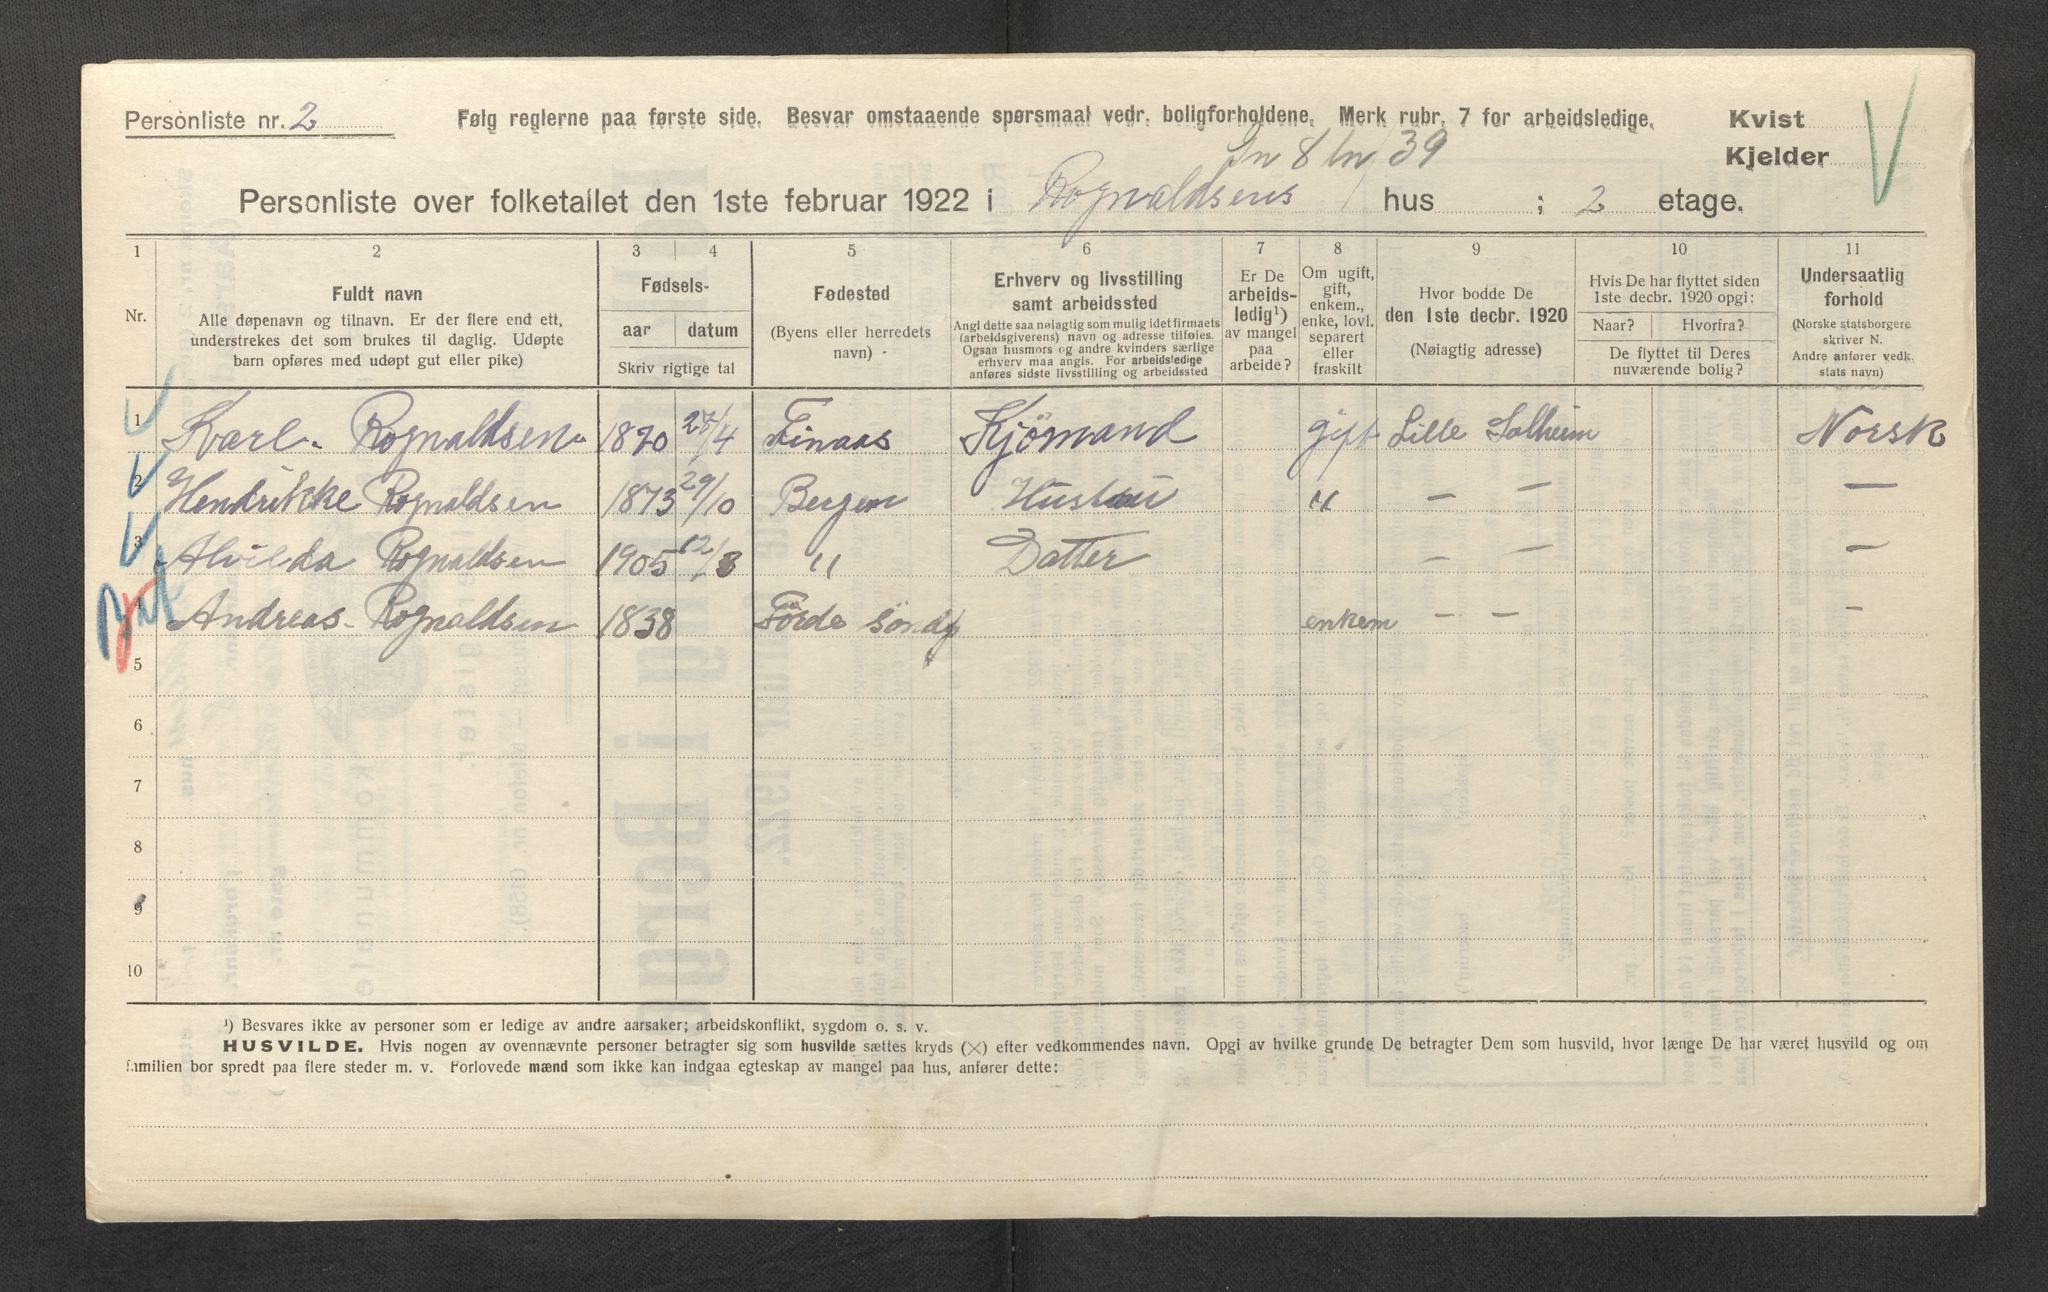 Personliste nr. 2 Følg reglerne paa første side. Besvar omstaaende spørsmaal vedr. boligforholdene. Merk rubr. 7 for arbeidsledige. Kvist
Gn 8 bn 39 Kjelder
Personliste over folketallet den 1ste februar 1922 i Rognaldsens hus ; 2 etage.
1 2 3 4 5 6 7 8 9 10 11
Nr.
Fuldt navn
Alle døpenavn og tilnavn. Er der flere end ett,
understrekes det som brukes til daglig. Udøpte
barn opføres med udøpt gut eller pike)
Fødsels-
aar datum
Skriv rigtige tal
Fødested
(Byens eller herredets
navn)
Erhverv og livsstilling
samt arbeidssted
Angi dette saa nøiagtig som mulig idet firmaets
(arbeidsgiverens) navn og adresse tilføies.
Ogsaa husmors og andre kvinders særlige
erhverv maa angis. For arbeidsledige
anføres sidste livsstilling og arbeidssted
Er De
arbeids-
ledig¹)
av mangel
paa
arbeide?
Om ugift,
gift,
enkem.,
enke, lovl.
separert
eller
fraskilt
Hvor bodde De
den 1ste decbr. 1920
(Nøiagtig adresse)
Hvis De har flyttet siden
1ste decbr. 1920 opgi:
Naar? Hvorfra?
De flyttet til Deres
nuværende bolig?
Undersaatlig
forhold
(Norske statsborgere
skriver N.
Andre anfører vedk.
stats navn)
1 Karl Rognaldsen 1870 /4 Finaas Kjømand gift Lille Solheim Norsk
2 Hendrikke Rognaldsen 1873 29/10 Bergen Hustru " — — —
3 Alvilda Rognaldsen 1905 12/3 " Datter — — —
4 Andreas Rognaldsen 1838 Førde Søndf enkem — — —
5
6
7
8
9
10
¹) Besvares ikke av personer som er ledige av andre aarsaker; arbeidskonflikt, sygdom o. s. v.
HUSVILDE. Hvis nogen av ovennævnte personer betragter sig som husvilde sættes kryds (×) efter vedkommendes navn. Opgi av hvilke grunde De betragter Dem som husvild, hvor længe De har været husvild og om
familien bor spredt paa flere steder m. v. Forlovede mænd som ikke kan indgaa egteskap av mangel paa hus, anfører dette: